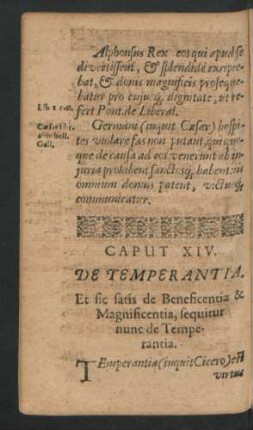 Alphonsus Rex eos qui apud se
divertissent, & splendidè excipie-
bat, & donis magnificis proseque-
batur pro cujusq; dignitate, ut re-
Lib 1 c.
fert Pont. de Liberal.
Cæsar
Germani (inquit Cæsar) hospi-
de bell.
tes violare fas non putant, qui qua-
Gall.
que de causa ad eos venerunt ab in-
juria prohibent, sanctosq; habent: iis
omnium domus patent, victusq;
communicatur.
CAPUT XIV.
DE TEMPERANTIA.
Et sic satis de Beneficentia &
Magnificentia, sequitur
nunc de Tempe-
rantia.
TEmperantia (inquit Cicero) est
virtus